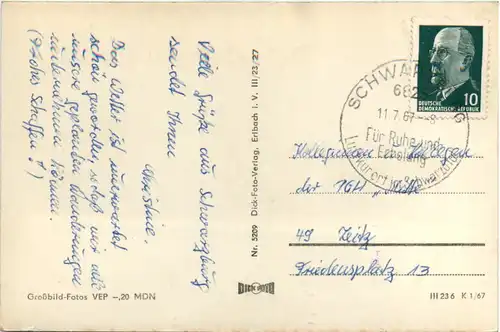 Viele Grüße aus Schwarzburg
sendet Ihnen
Christine.
Das Wetter ist unerwartet
schön geworden, so daß wir alle
unsere geplanten Wanderungen
unternehmen können.
(Frohes Schaffen!)
Großbild-Fotos VEP –,20 MDN
Nr. 5209 Dick-Foto-Verlag, Erlbach i. V. III/23/27
DICK FOTO
10
DEUTSCHE
DEMOKRATISCHE REPUBLIK
SCHWARZBURG
11.7.67
Für Ruhe und
Erholung
Luftkurort im Schwarzatal
Kolleginnen und Kollegen
der PGH
49 Zeitz
Friedensplatz 13
III 23 6 K 1/67